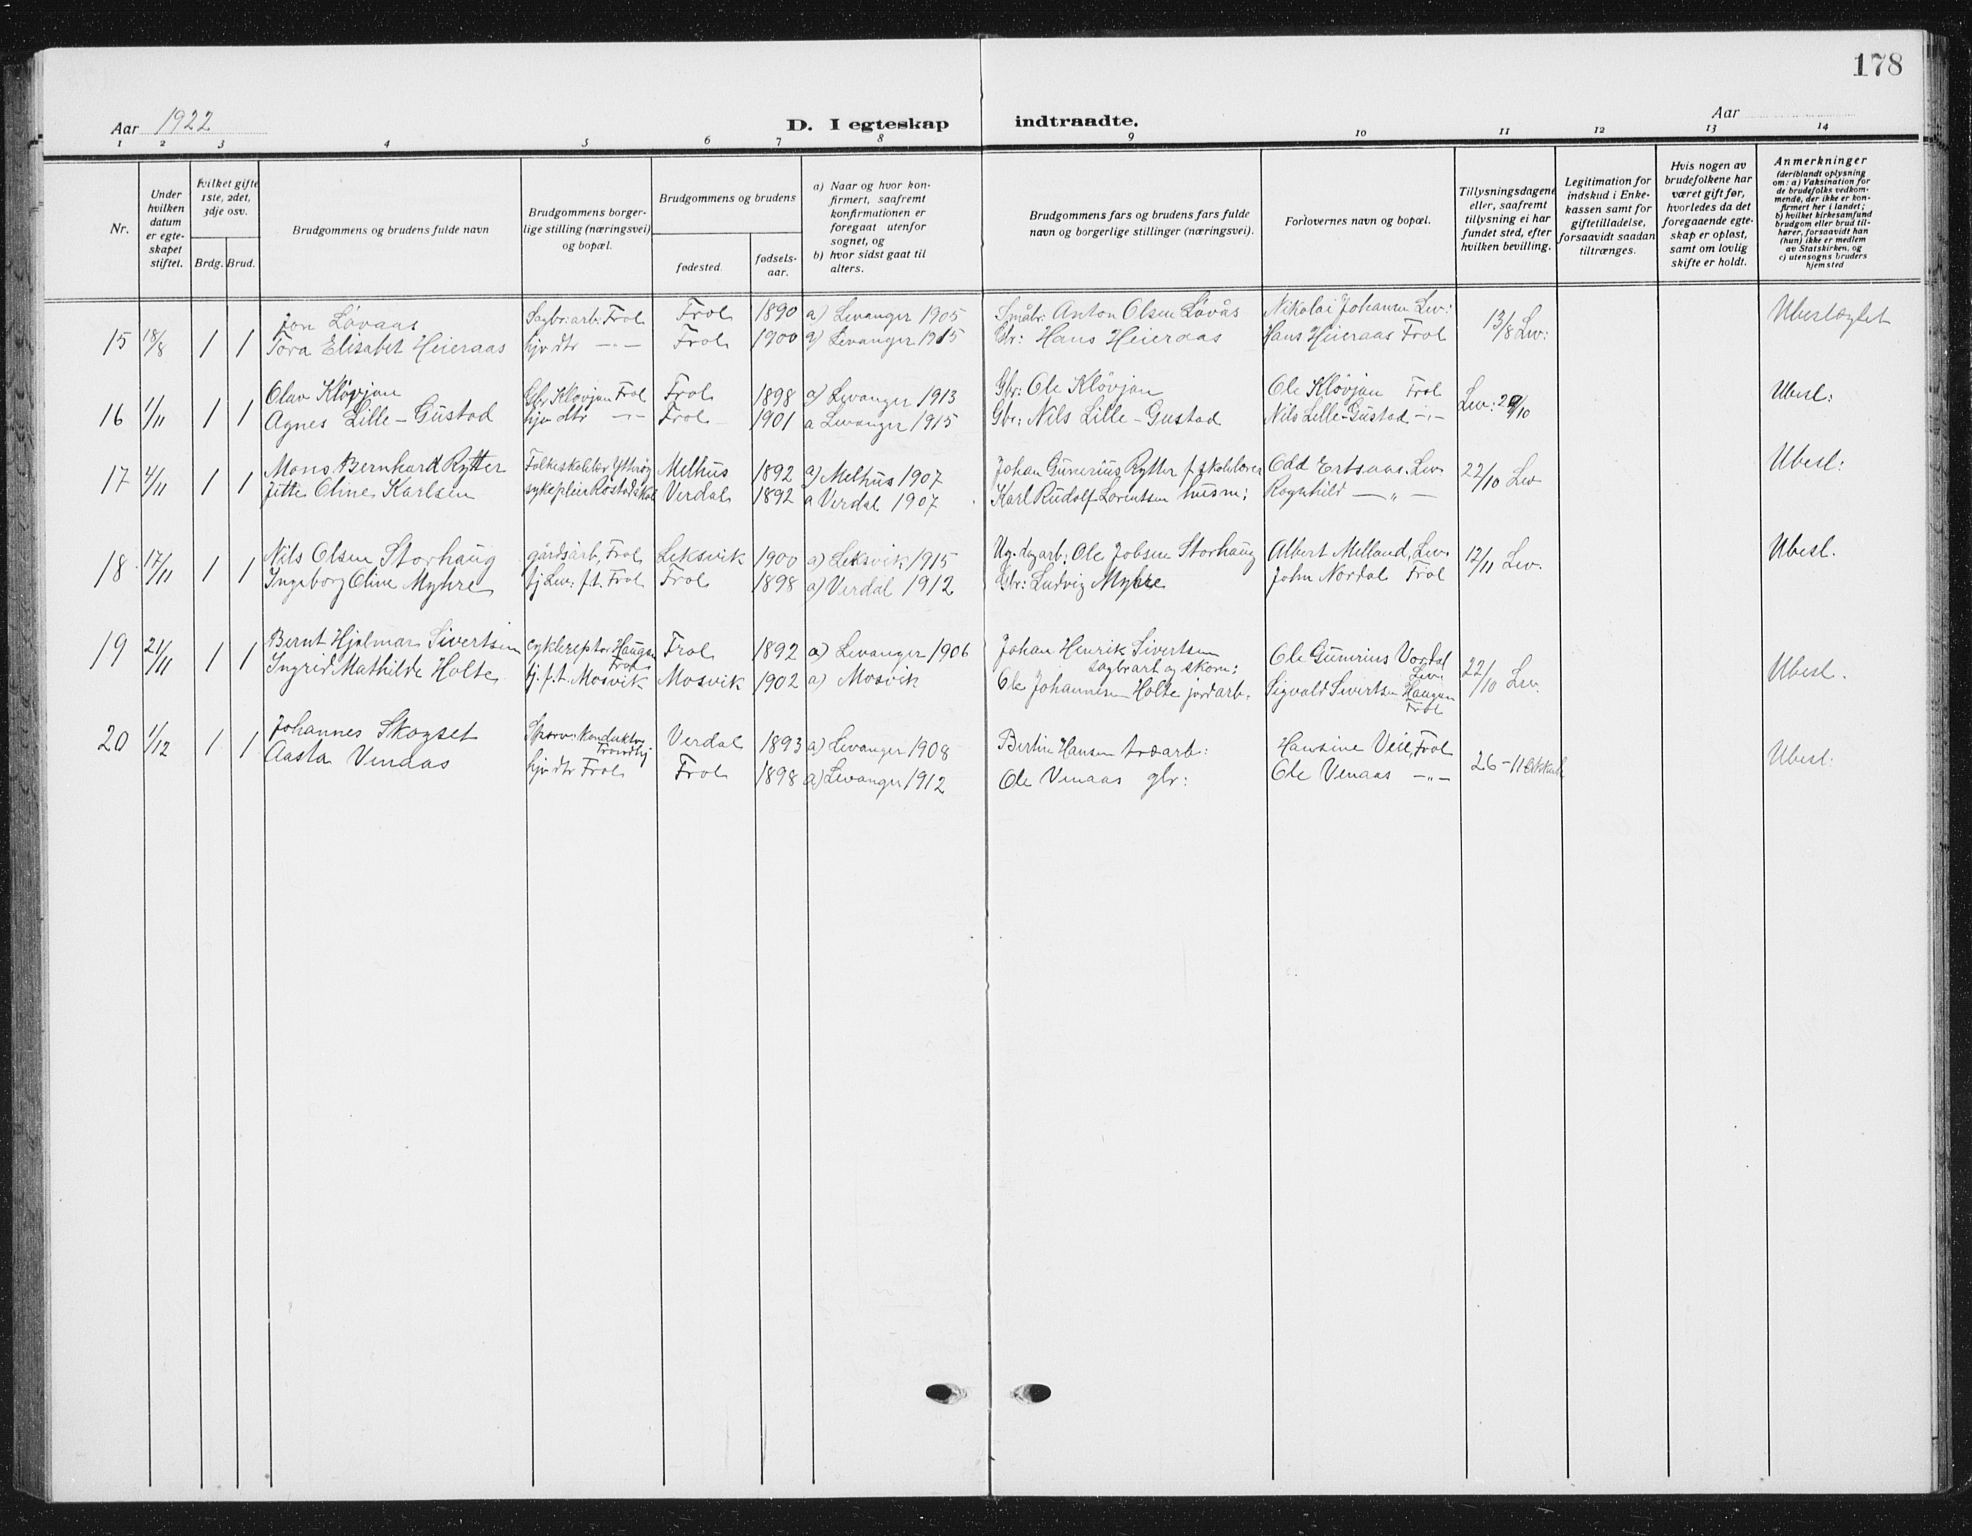 178
Aar 1922
D. I egteskap indtraadte.
Aar
1 2 3 4 5 6 7 8 9 10 11 12 13 14
Nr.
Under hvilken datum er egteskapet stiftet.
hvilket gifte 1ste, 2det, 3dje osv.
Brdg. Brud.
Brudgommens og brudens fulde navn
Brudgommens borgerlige stilling (næringsvei) og bopæl.
Brudgommens og brudens
fødested.
fødselsaar.
a) Naar og hvor konfirmert, saafremt konfirmationen er foregaat utenfor sognet, og
b) hvor sidst gaat til alters.
Brudgommens fars og brudens fars fulde navn og borgerlige stillinger (næringsvei).
Forlovernes navn og bopæl.
Tillysningsdagene eller, saafremt tillysning ei har fundet sted, efter hvilken bevilling.
Legitimation for indskud i Enkekassen samt for giftetilladelse, forsaavidt saadan tiltrænges.
Hvis nogen av brudefolkene har været gift før, hvorledes da det foregaaende egteskap er opløst, samt om lovlig skifte er holdt.
Anmerkninger (deriblandt oplysning om: a) Vaksination for de brudefolks vedkommende, der ikke er konfirmert her i landet; b) hvilket kirkesamfund brudgom eller brud tilhører, forsaavidt han (hun) ikke er medlem av Statskirken, og c) utensogns bruders hjemsted
Jon Løvaas Sagbr: arb: Frol Frol 1890 a) Levanger 1905 Småbr: Anton Olsen Løvås Nikolai Johansen Lev: Ubeslegtet
15 18/8 1 1 Tora Elisabet Heieraas hjv. dtr -"- Frol 1900 a) Levanger 1915 Gbr: Hans Heieraas Hans Heieraas Frol 13/8 Lev:
Olav Kløvjan Gbr Kløvjan Frol Frol 1898 a) Levanger 1913 Gbr: Ole Kløvjan Ole Kløvjan Frol Ubesl:
16 1/11 1 1 Agnes Lille-Gustad hjv dtr -"- Frol 1901 a Levanger 1915 Gbr: Nils Lille-Gustad Nils Lille-Gustad -"- Lev: 29/10
Mons Bernhard Rytter Folkeskolelær Ytterøy Melhus 1892 a) Melhus 1907 Johan Gunerius Rytter f. skolelærer Odd Ertsaas Lev Ubesl:
17 4/11 1 1 Jitte Oline Karlsen sykepleir Verdal 1892 a Verdal 1907 Karl Rudolf Lorentsen husm; Ragnhild -"- 22/10 Lev
Nils Olsen Storhaug gårdsarb, Frol Leksvik 1900 a) Leksvik 1915 Ole Jobsen Storhaug Albert Melland, Lev. Ubesl.
18 17/11 1 1 Ingeborg Oline Myhre tj Lev. f.t. Frol Frol 1898 a) Verdal 1912 Gbr: Ludvig Myhre John Nordal Frol 12/11 Lev.
Bernt Hjalmar Sivertsen cyklerep.tør Haugen Frol Frol 1892 a) Levanger 1906 Johan Henrik Sivertsen sagbrarb og skom; Ole Gunerius Vordal Lev.
19 21/11 1 1 Ingrid Mathilde Holte tj. f.t. Mosvik Mosvik 1902 a) Mosvik Ole Johannesen Holte jordarb. Sigvald Sivertsen Haugen Frol 22/10 Lev. Ubesl.
Johannes Skogset Sporv: konduktør Trondhj Verdal 1893 a) Levanger 1908 Bertin Hansen træarb: Hansine Veie, Frol
20 1/12 1 1 Aasta Venaas hjv dtr Frol Frol 1898 a) Levanger 1912 Ole Venaas gbr: Ole Venaas -"- 26-11 Ubesl: